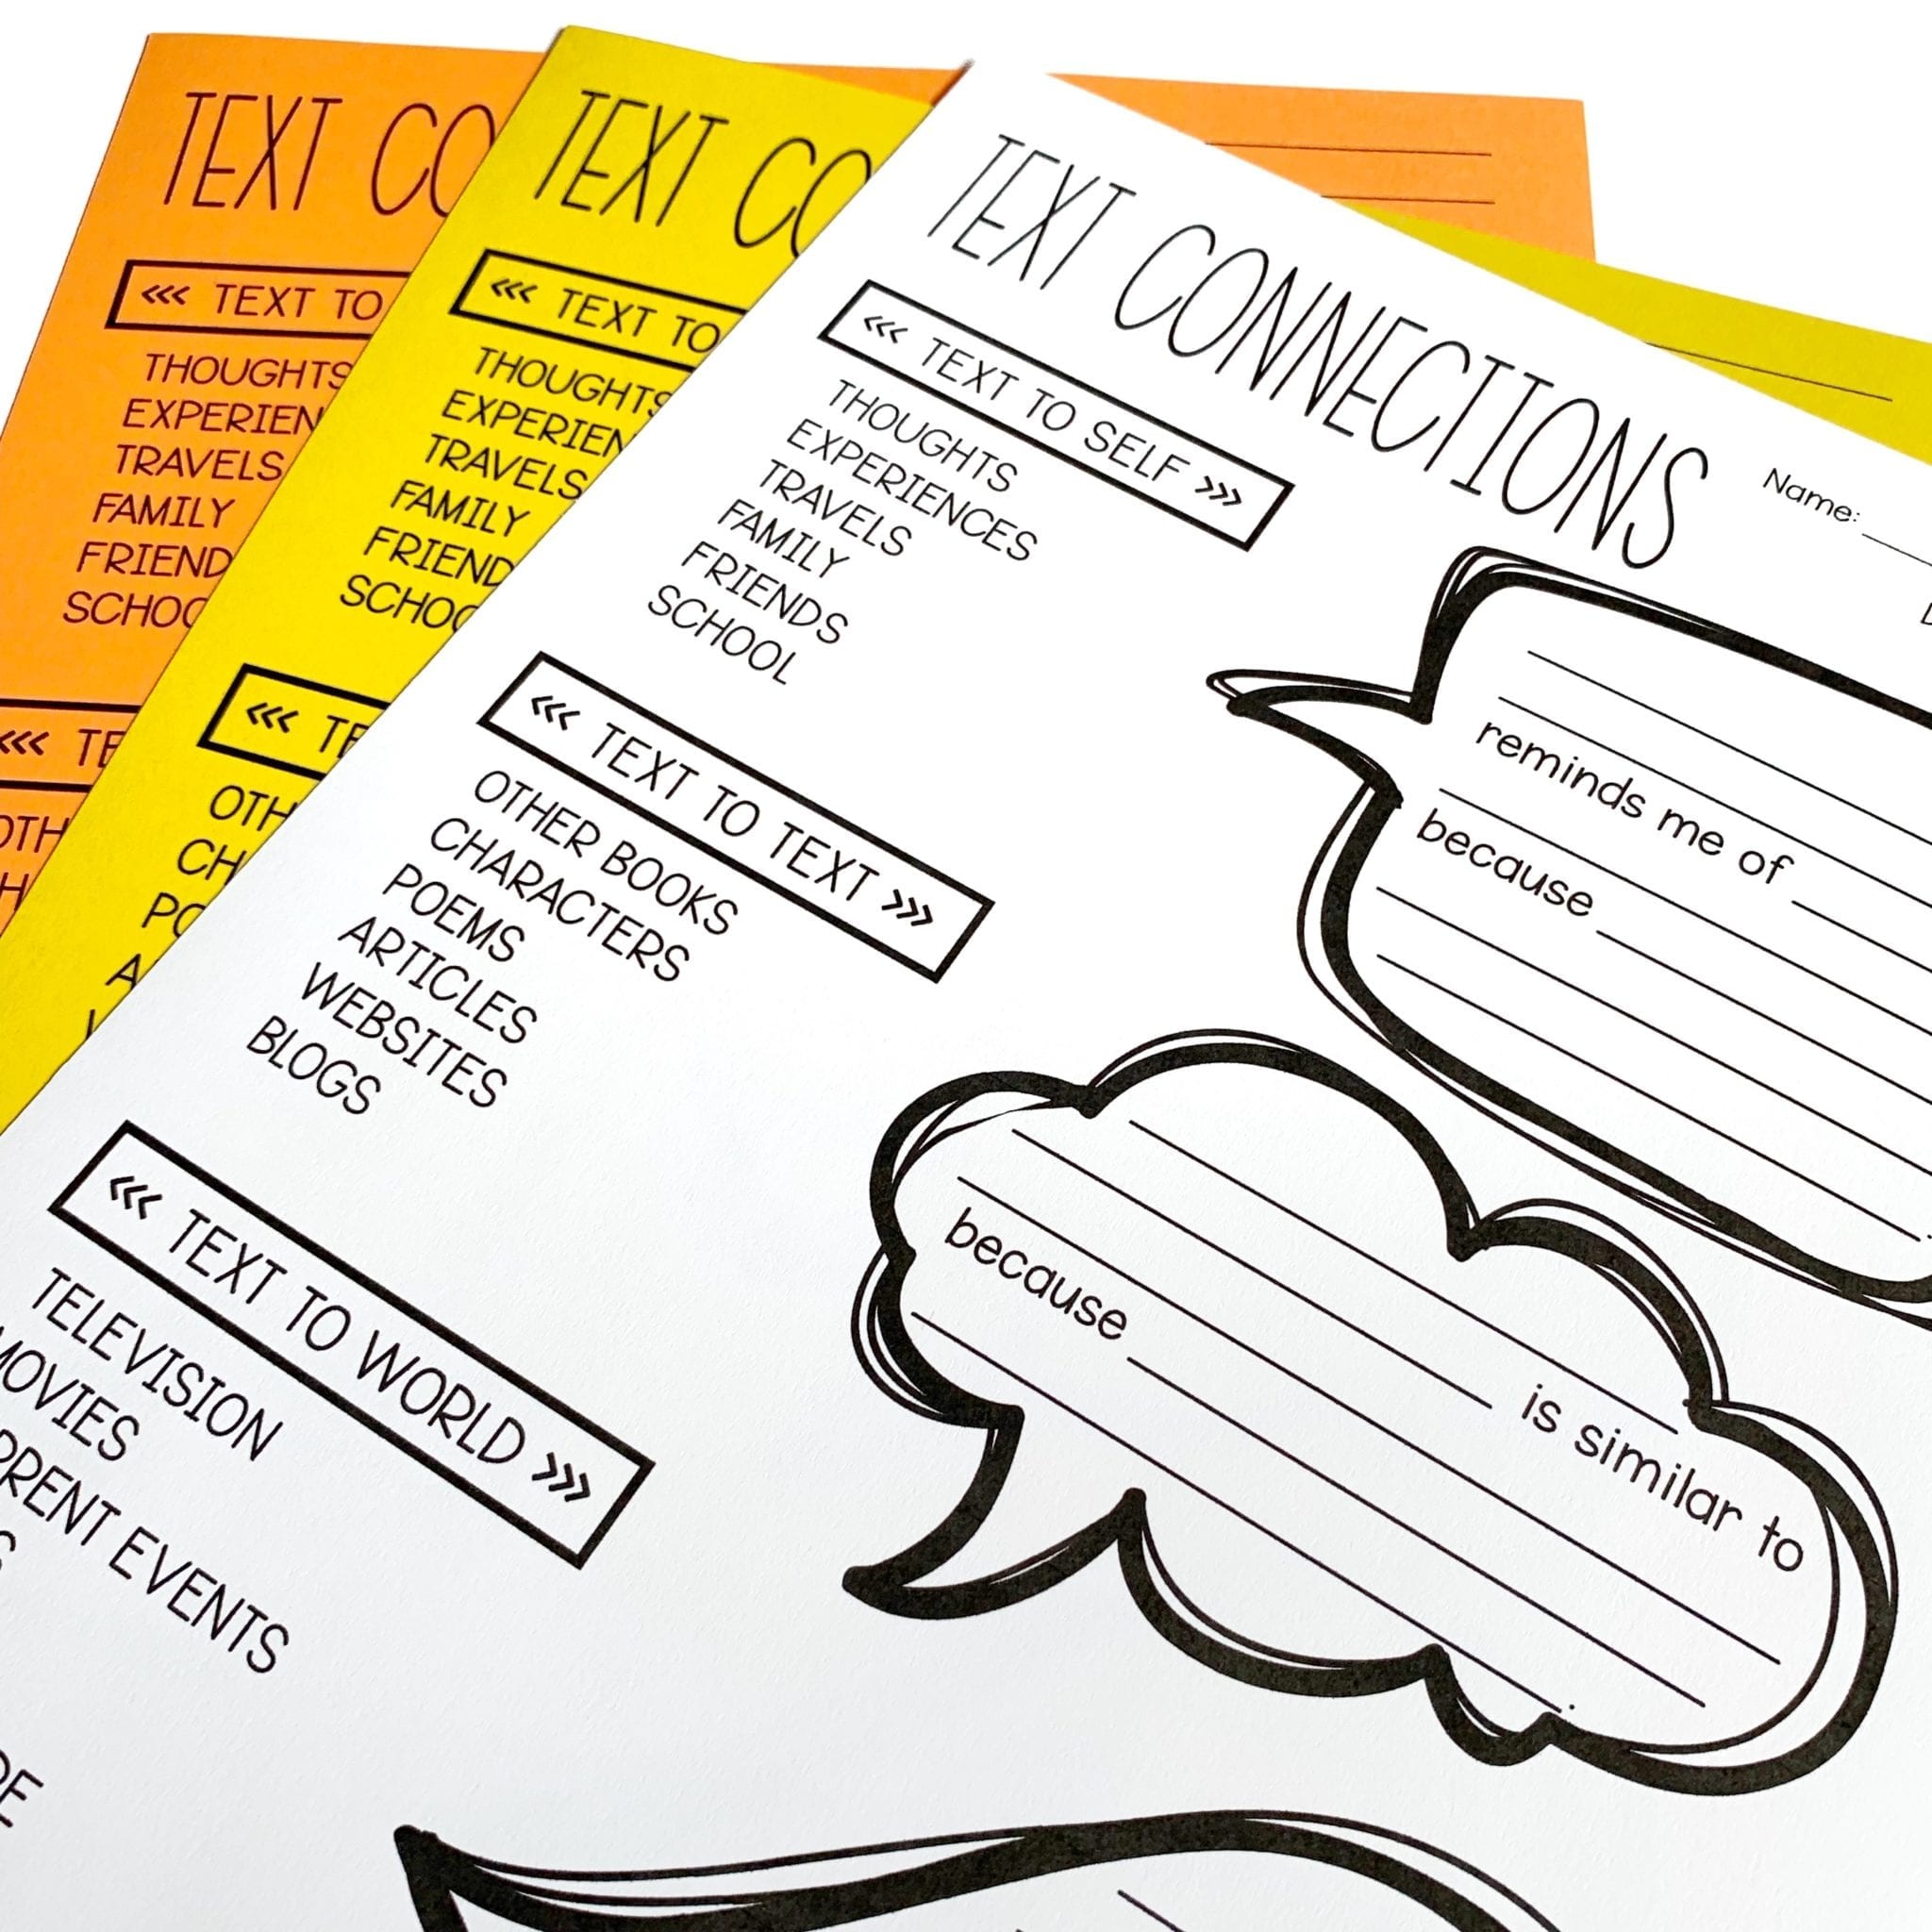 TEXT CO
<<< TEXT TO
THOUGHTS
EXPERIEN
TRAVELS
FAMILY
FRIEND
SCHOO
<<< TE
OTH
TEXT CO
<<< TEXT TO
THOUGHTS
EXPERIEN
TRAVELS
FAMILY
FRIEND
SCHOO
<<< TE
OTH
CH
PO
A
TEXT CONNECTIONS
Name:
<<< TEXT TO SELF >>>
THOUGHTS
EXPERIENCES
TRAVELS
FAMILY
FRIENDS
SCHOOL
reminds me of
because
<<< TEXT TO TEXT >>>
OTHER BOOKS
CHARACTERS
POEMS
ARTICLES
WEBSITES
BLOGS
is similar to
because
.
<<< TEXT TO WORLD >>>
TELEVISION
MOVIES
RRENT EVENTS